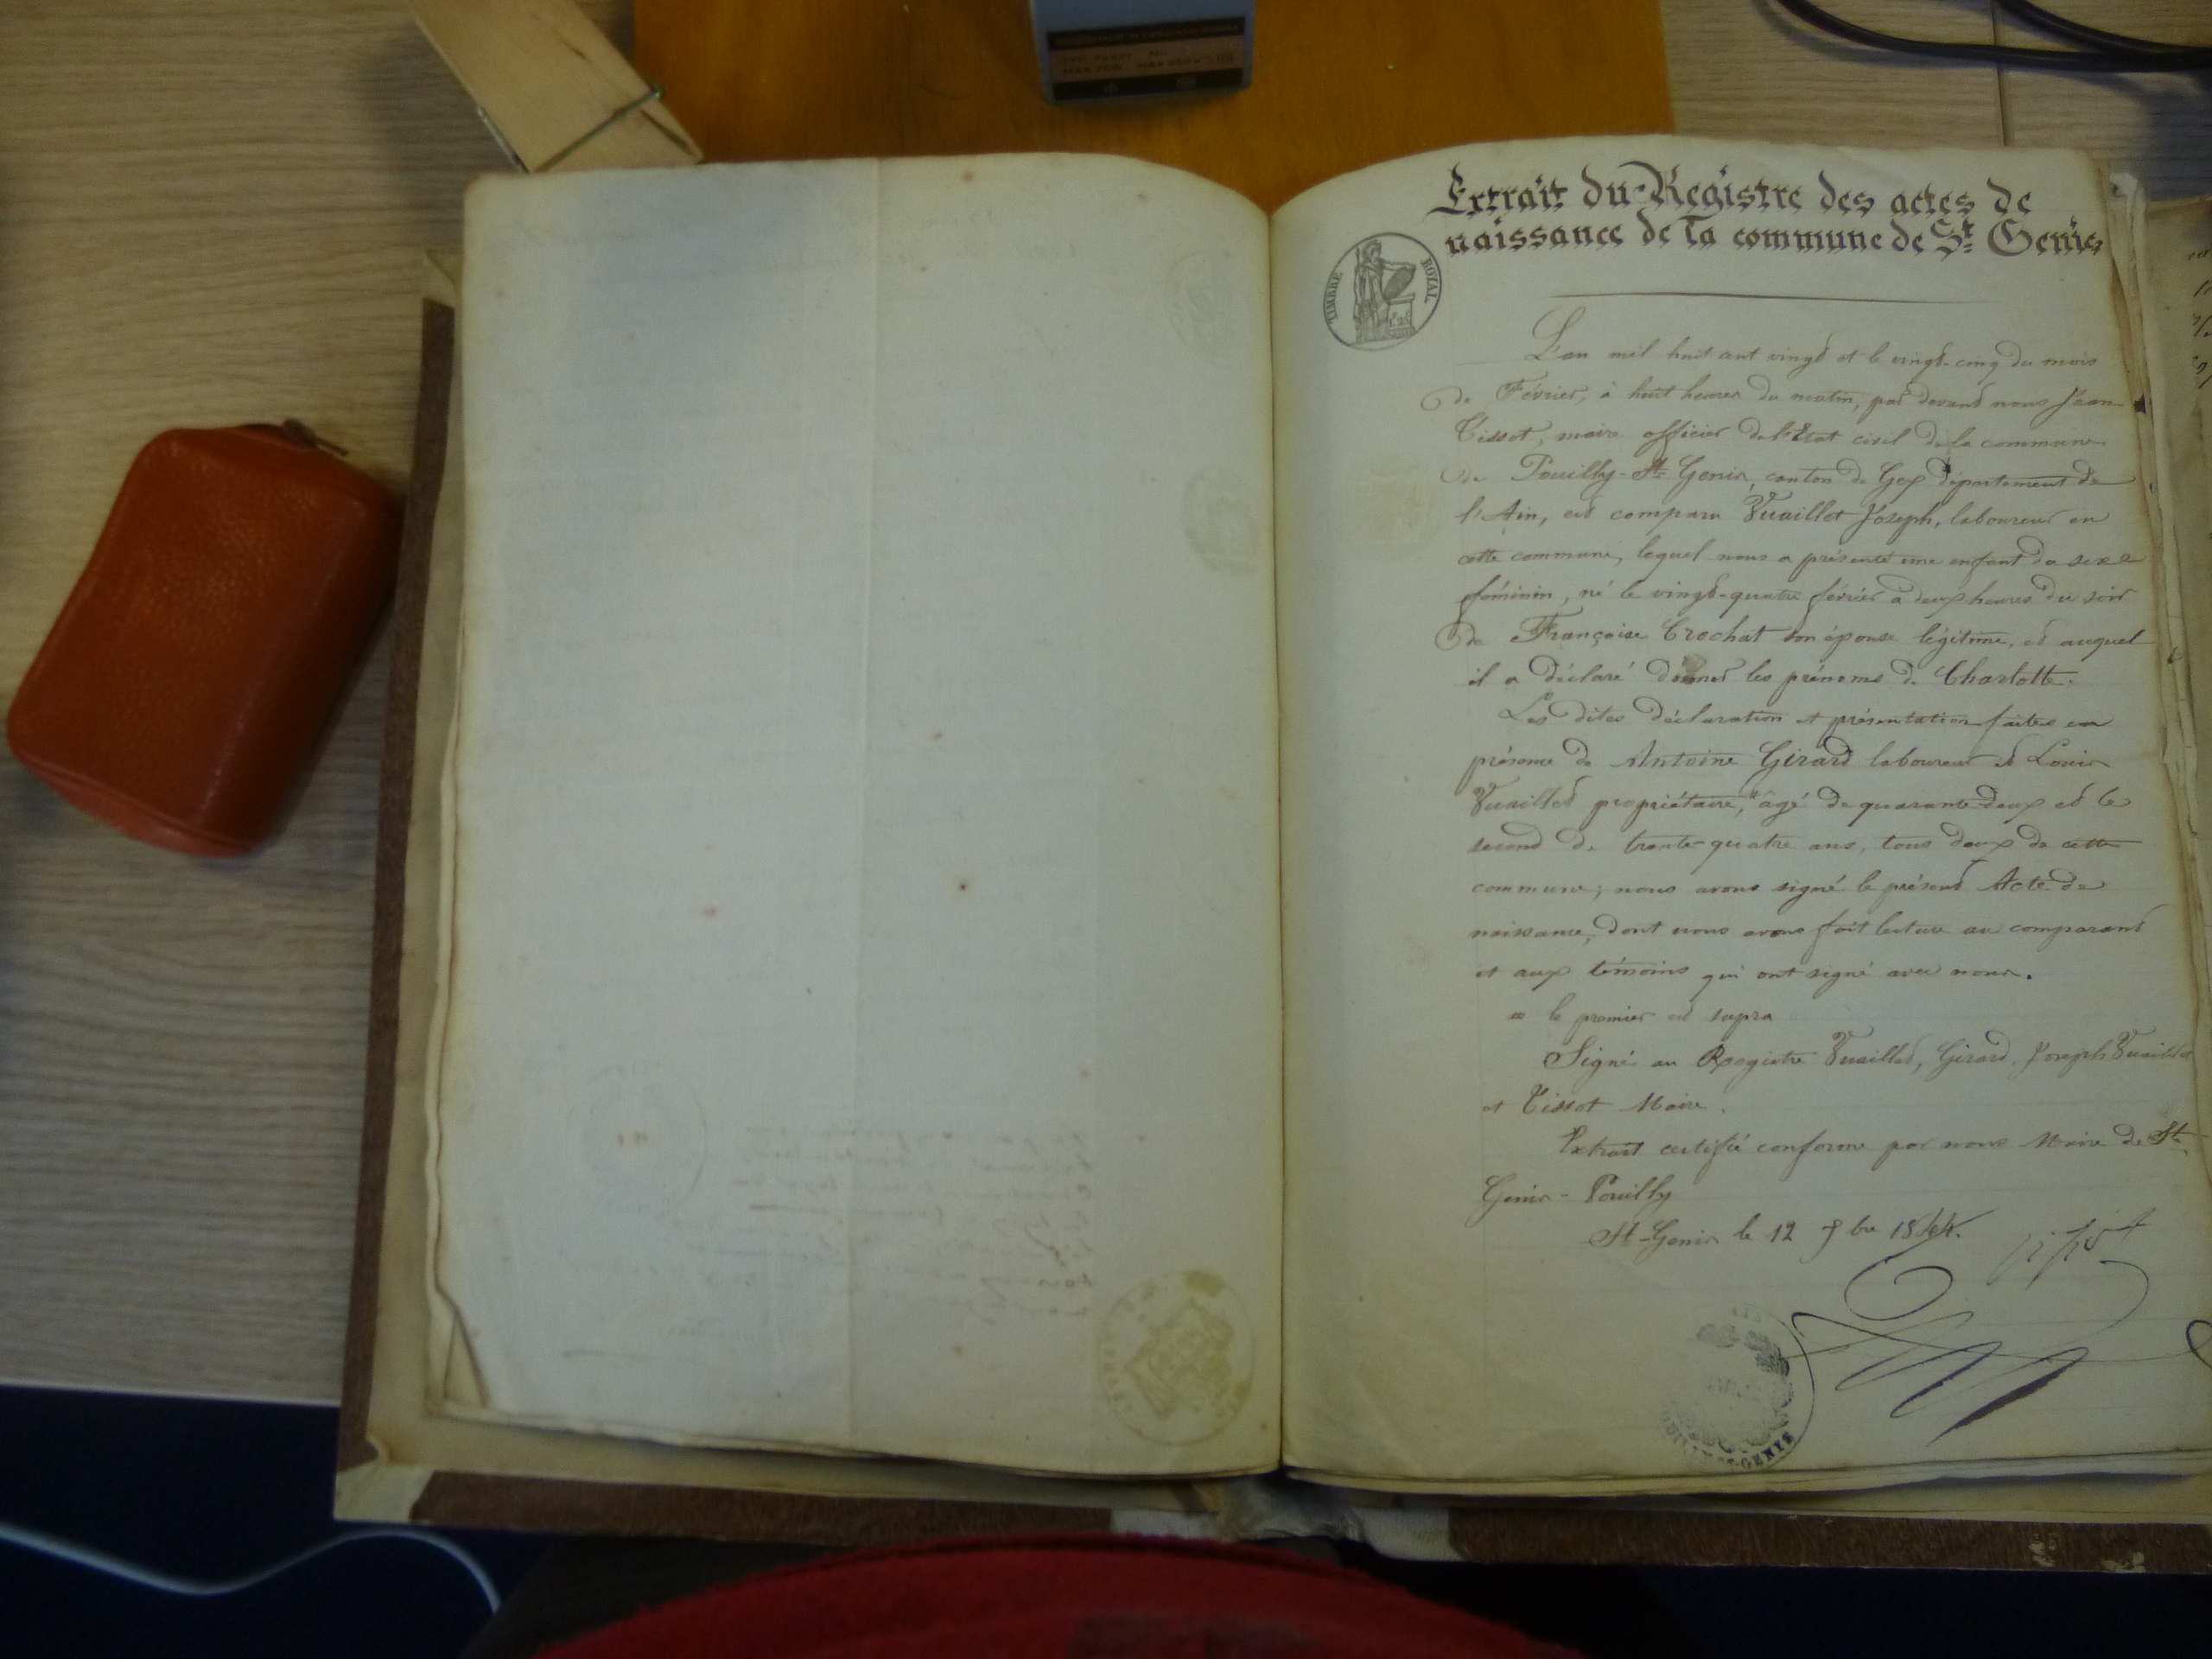 Extrait du Registre des actes de
naissance de la commune de St Genis
TIMBRE ROYAL
L'an mil huit cent vingt et le vingt-cinq du mois
de Février, à huit heures du matin, par devant nous Jean
Tissot, maire officier de l'état civil de la commune
de Pouilly-St Genis, canton de Gex département de
l'Ain, est comparu Vuaillet Joseph, laboureur en
cette commune, lequel nous a présenté une enfant du sexe
féminin, né le vingt-quatre février à deux heures du soir
de Françoise Crochat son épouse légitime, et auquel
il a déclaré donner les prénoms de Charlotte.
Les dites déclaration et présentation faites en
présence de Antoine Girard laboureur et Louis
Vuaillet propriétaire, * âgé de quarante-deux et le
second de trente-quatre ans, tous deux de cette
commune; nous avons signé le présent Acte de
naissance, dont nous avons fait lecture au comparant
et aux témoins qui ont signé avec nous.
* le premier est supra
Signé au Registre Vuaillet, Girard, Joseph Vuaillet
et Tissot Maire.
Extrait certifié conforme par nous Maire de St
Genis-Pouilly
St-Genis le 12 7bre 1844.
GENIS